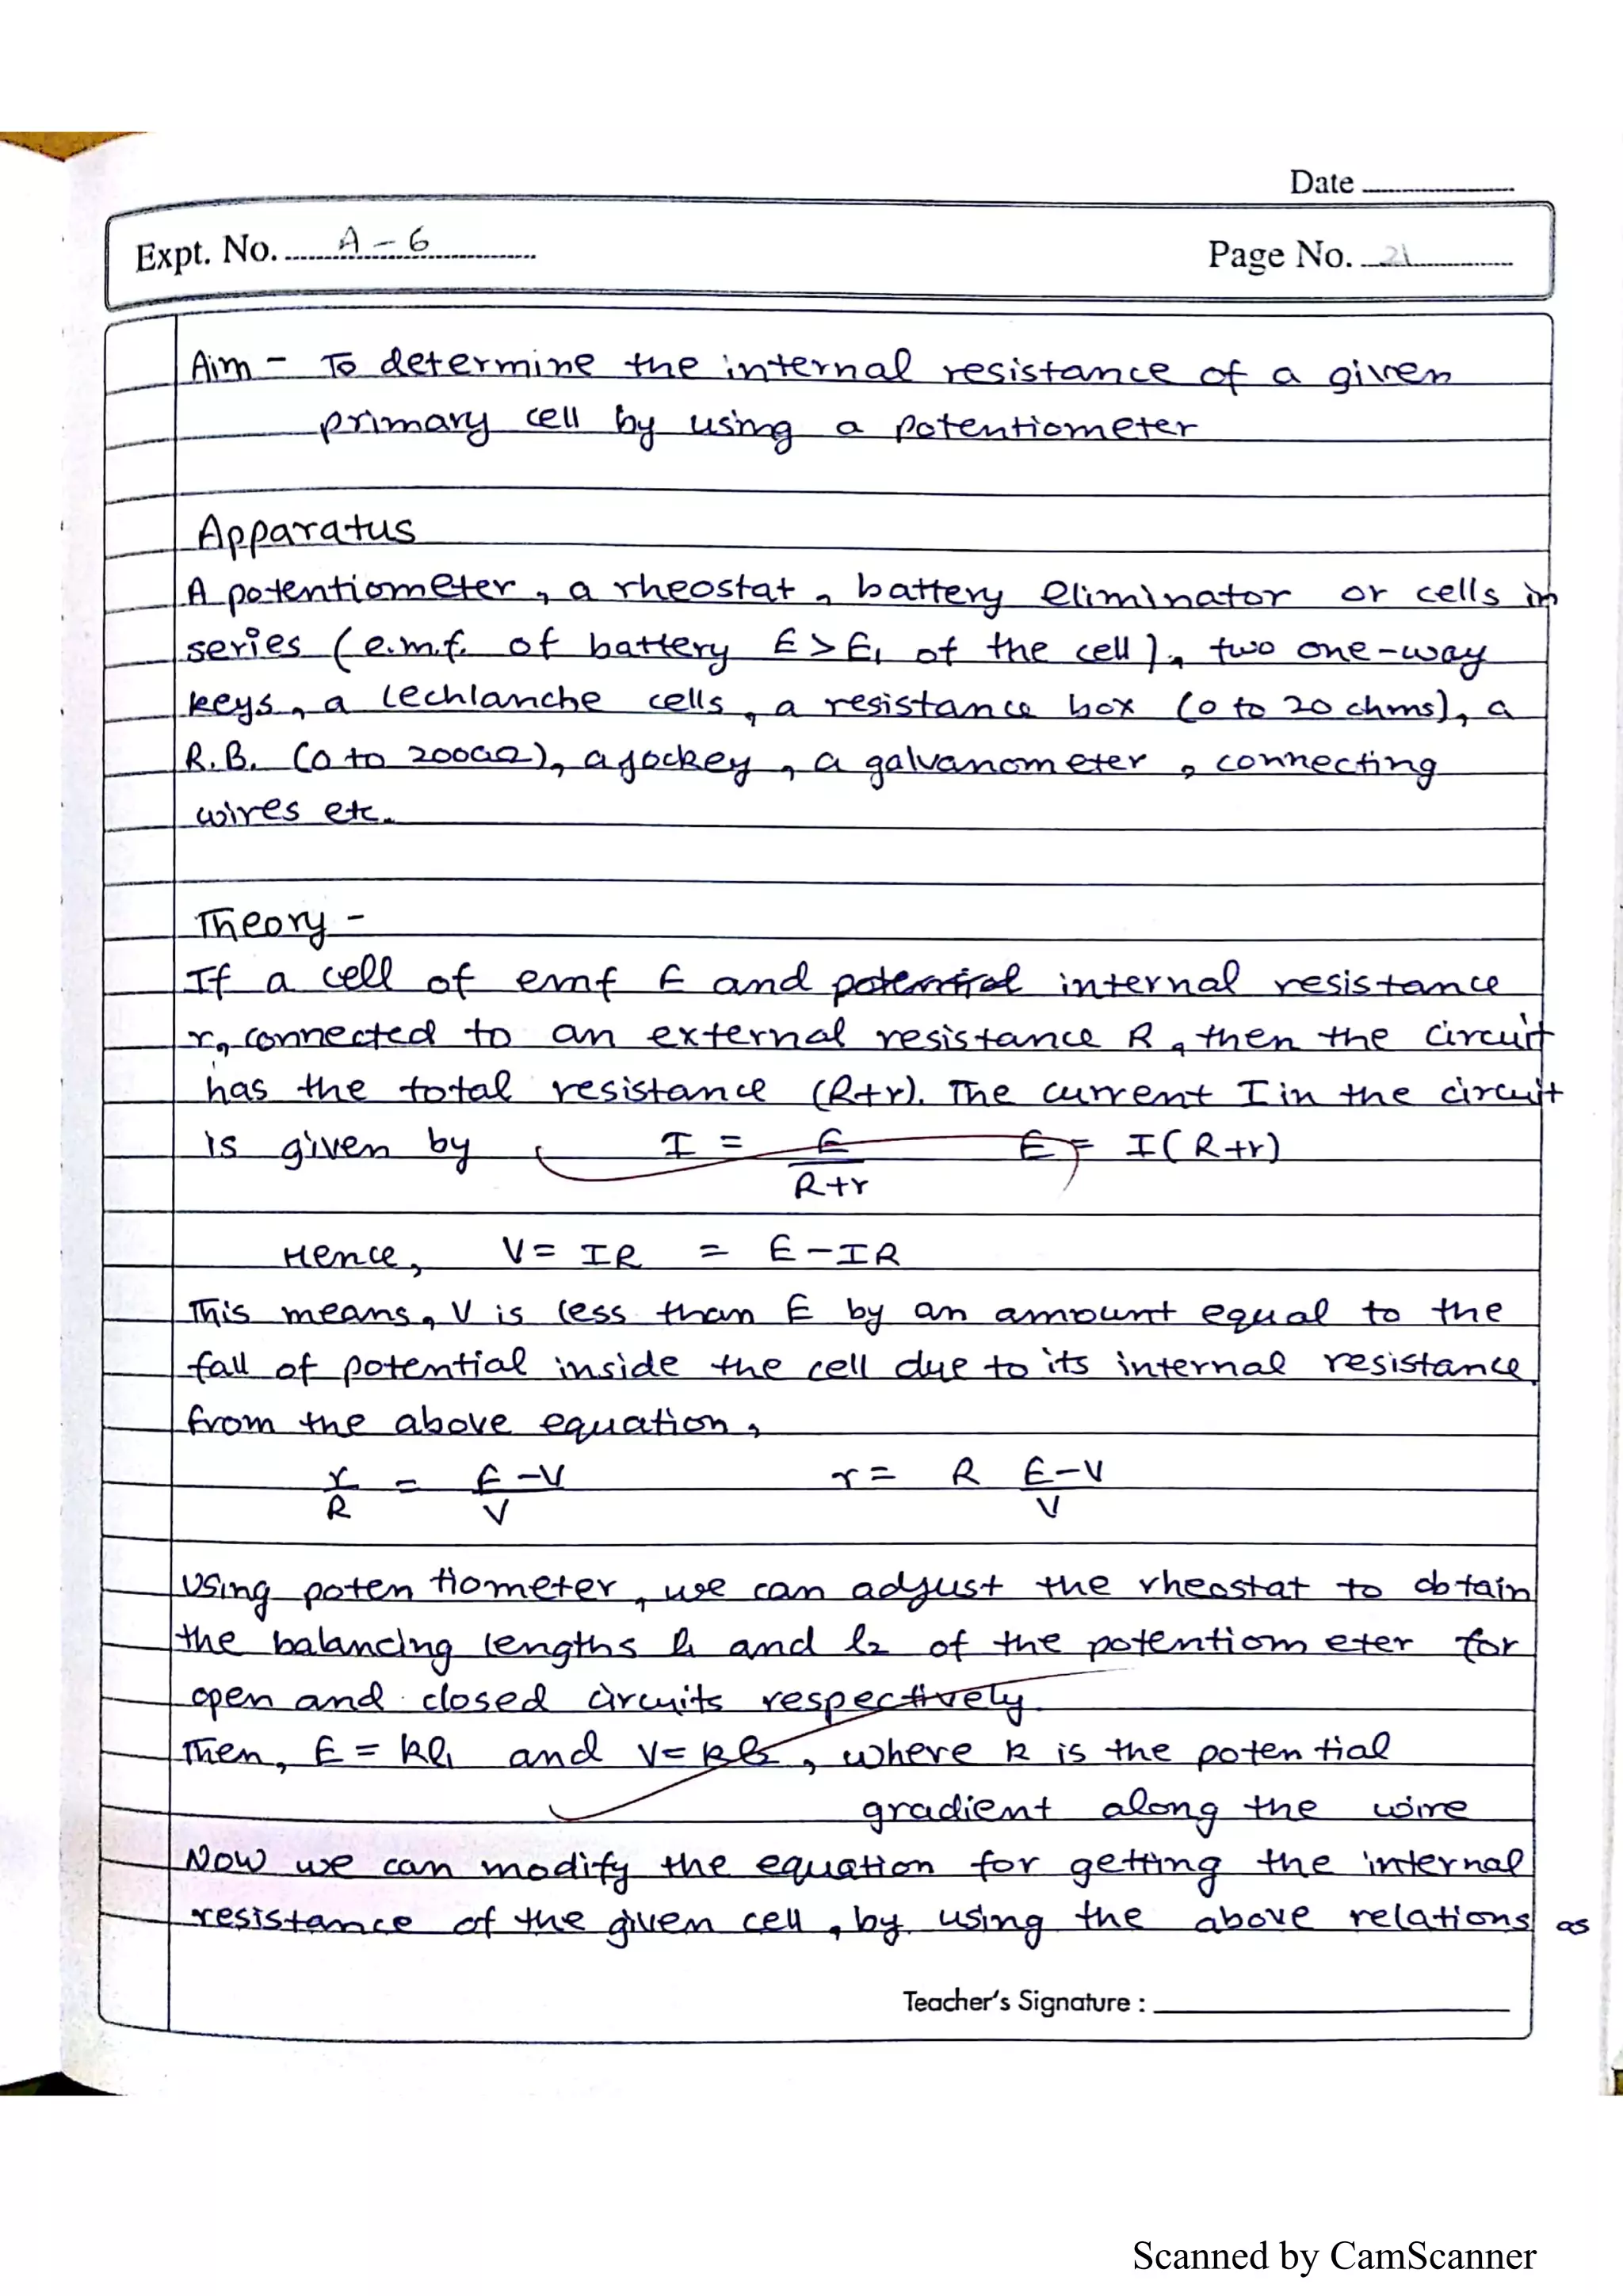 Date
Expt. No. A-6 Page No. 21
Aim - To determine the internal resistance of a given
primary cell by using a potentiometer
Apparatus
A potentiometer, a rheostat, battery eliminator or cells in
series (e.m.f. of battery E > E₁ of the cell), two one-way
keys, a lechlanche cells, a resistance box (0 to 20 ohms), a
R.B. (0 to 2000Ω), a jockey, a galvanometer, connecting
wires etc.
Theory -
If a cell of emf E and potential internal resistance
r, connected to an external resistance R, then the circuit
has the total resistance (R+r). The current I in the circuit
is given by I = E E = I(R+r)
R+r
Hence, V = IR = E - IR
This means, V is less than E by an amount equal to the
fall of potential inside the cell due to its internal resistance.
from the above equation,
r = E-V r = R E-V
R V V
Using potentiometer, we can adjust the rheostat to obtain
the balancing lengths l₁ and l₂ of the potentiometer for
open and closed circuits respectively.
Then, E = kl₁ and V = kl₂, where k is the potential
gradient along the wire
Now we can modify the equation for getting the internal
resistance of the given cell, by using the above relations as
Teacher's Signature :
Scanned by CamScanner